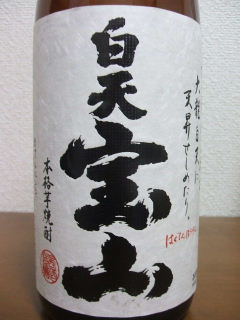 白天
宝山
天昇せしめたり。
はくてんほうざん
本格芋焼酎